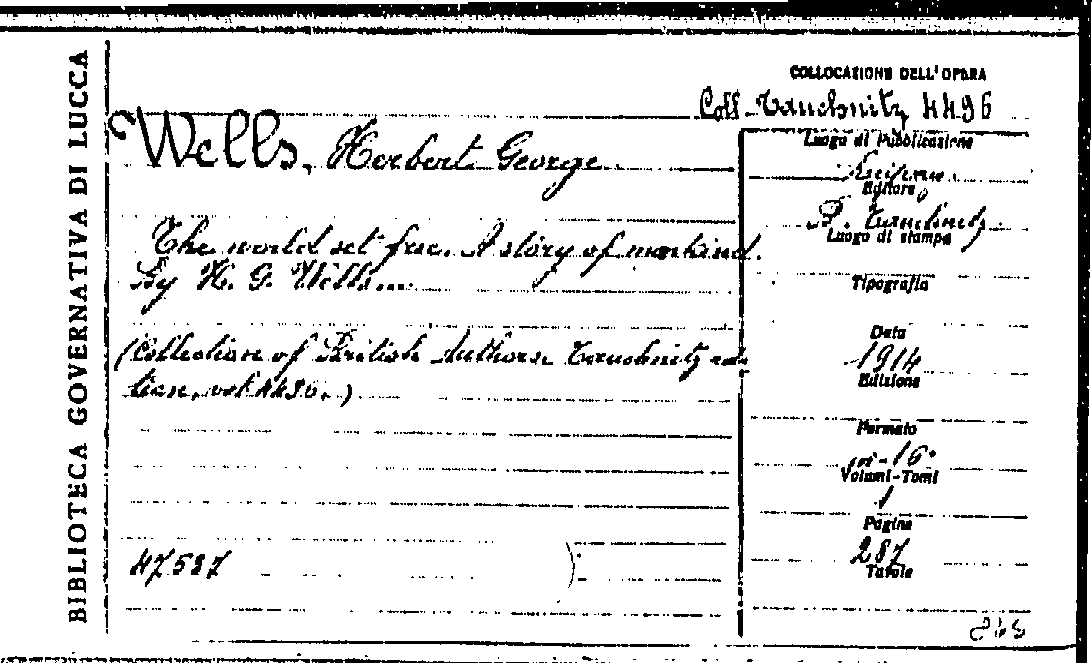 BIBLIOTECA GOVERNATIVA DI LUCCA
COLLOCAZIONE DELL'OPERA
Coll. Tauchnitz 4496
Wells, Herbert George
The world set free. A story of mankind.
By H. G. Wells...
(Collection of British Authors Tauchnitz edi-
tion, vol. 4496.)
47587
Luogo di Pubblicazione
Editore
B. Tauchnitz
Luogo di stampa
Tipografia
Data
1914
Edizione
Formato
in-16°
Volumi-Tomi
1
Pagine
287
Tavole